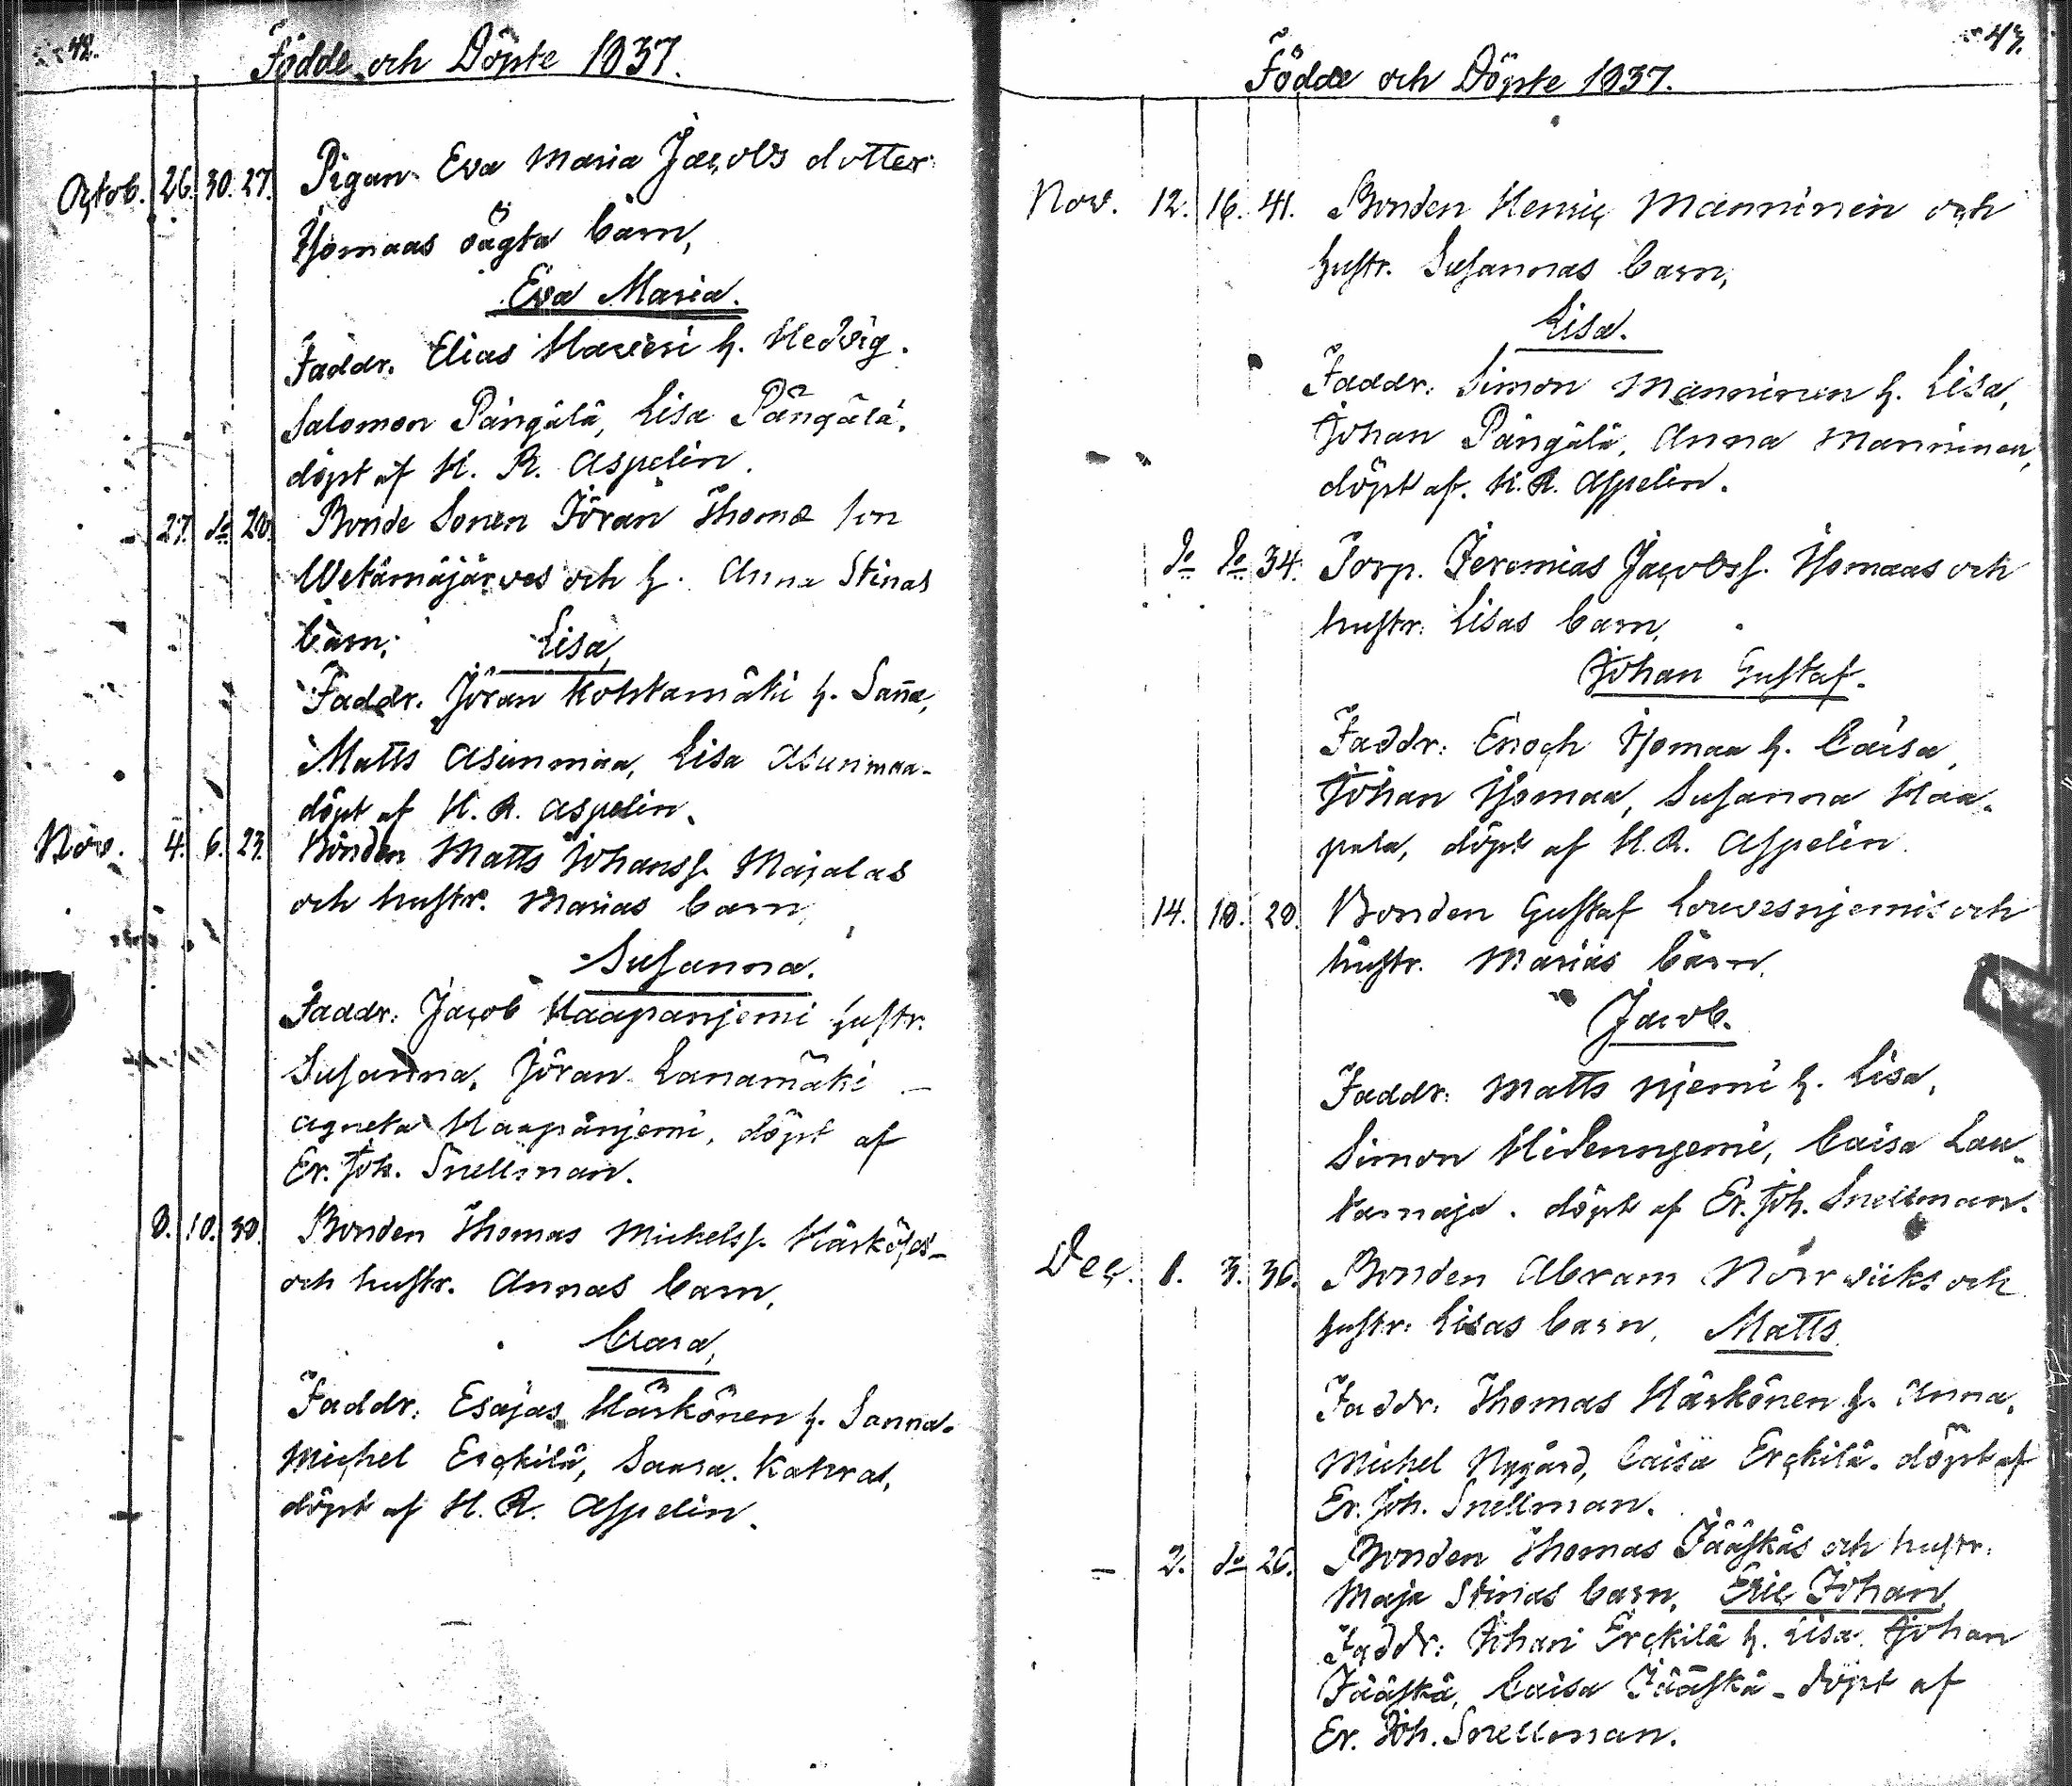 42.
Födde och Döpte 1837.
Octob. 26. 30. 27. Pigan Eva Maria Jacobs dotter
Ihomaas oägta barn,
Eva Maria.
Faddr. Elias h. Hedvig.
Salomon Pängälä, Lisa Pängälä.
döpt af H. R. Aspelin.
27. do 28. Bonde Sonen Jöran Thomæ son
Wetämäjärves och h. Anna Stinas
barn; Lisa,
Faddr. Jöran Kohtamäki h. Sanna,
Matts Asunmaa, Lisa Asunmaa.
döpt af H. R. Aspelin.
Nov. 4. 6. 23. Bonden Matts Johanss. Majalas
och hustr. Marias barn
Susanna.
Faddr: Jacob Haapanjemi hustr.
Susanna, Jöran Lanamäki
Agneta Haapanjemi, döpt af
Er. Joh. Snellman.
8. 10. 30. Bonden Thomas Michelss. Härkös
och hustr. Annas barn,
Clara,
Faddr: Esajas Härkönen h. Sanna.
Michel Erckilä, Saara
döpt af H. R. Aspelin.
43.
Födde och Döpte 1837.
Nov. 12. 16. 41. Bonden Henric Manninen och
hustr. Susannas barn,
Lisa.
Faddr: Simon Manninen h. Lisa,
Johan Pängälä, Anna Manninen,
döpt af. H. R. Aspelin.
do do 34. Torp. Jeremias Jacobss. Ihomaas och
hustr: Lisas barn,
Johan Gustaf.
Faddr: Enoch Ihomaa h. Caisa,
Johan Ihomaa, Susanna Haa-
pala, döpt af H. R. Aspelin.
14. 18. 20. Bonden Gustaf Louvesnjemis och
hustr. Marias barn,
Jacob.
Faddr: Matts Njemi h. Lisa,
Simon Hidennjemi, Caisa Lau-
tamaja. döpt af Er. Joh. Snellman.
Dec. 1. 3. 36. Bonden Abram Norrviiks och
hustr: Lisas barn, Matts
Faddr: Thomas Härkönen h. Anna,
Michel Nygård, Caisa Erckilä. döpt af
Er. Joh. Snellman.
- 2. do 26. Bonden Thomas Jääskäs och hustr.
Maja Stinas barn, Eric Johan
Faddr: Johan Erckilä h. Lisa. Johan
Jääskä, Caisa Jääskä - döpt af
Er. Joh. Snellman.